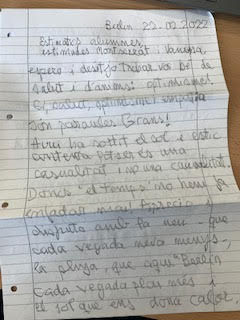 Berlin 22-02-2022
Estimats alumnes,
estimades Montserrat i Vanessa,
espero i desitjo trobar-vos bé de
salut i d'ànims: optimisme!
Sí, salut, optimisme i empatia
són paraules Grans!
Avui ha sortit el sol i estic
contenta potser és una
casualitat i no una causalitat.
Doncs "el temps" no hem fa
canviar mai! Aprecio i
disfruto amb la neu - que
cada vegada neva menys -,
la pluja, que aquí Berlin
cada vegada plou més i
el sol que ens dona calor,